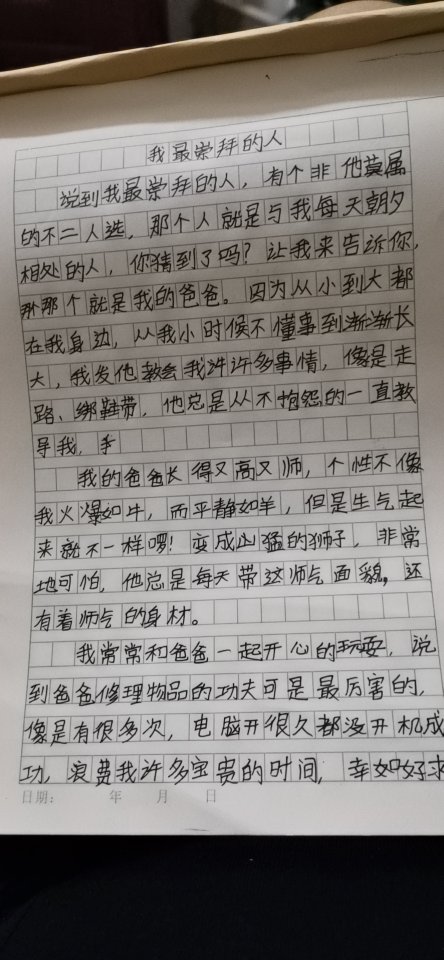 我最崇拜的人
说到我最崇拜的人，有个非他莫属
的不二人选，那个人就是与我每天朝夕
相处的人，你猜到了吗？让我来告诉你，
那个就是我的爸爸。因为从小到大都
在我身边，从我小时候不懂事到渐渐长
大，我发他教会我许许多事情，像是走
路、绑鞋带，他总是从不抱怨的一直教
导我，
我的爸爸长得又高又师，个性不像
我火爆如牛，而平静如羊，但是生气起
来就不一样啰！变成凶猛的狮子，非常
地可怕，他总是每天带这师气面貌，还
有着师气的身材。
我常常和爸爸一起开心的玩耍，说
到爸爸修理物品的功夫可是最厉害的，
像是有很多次，电脑开很久都没开机成
功，浪费我许多宝贵的时间，幸好求
日期： 年 月 日